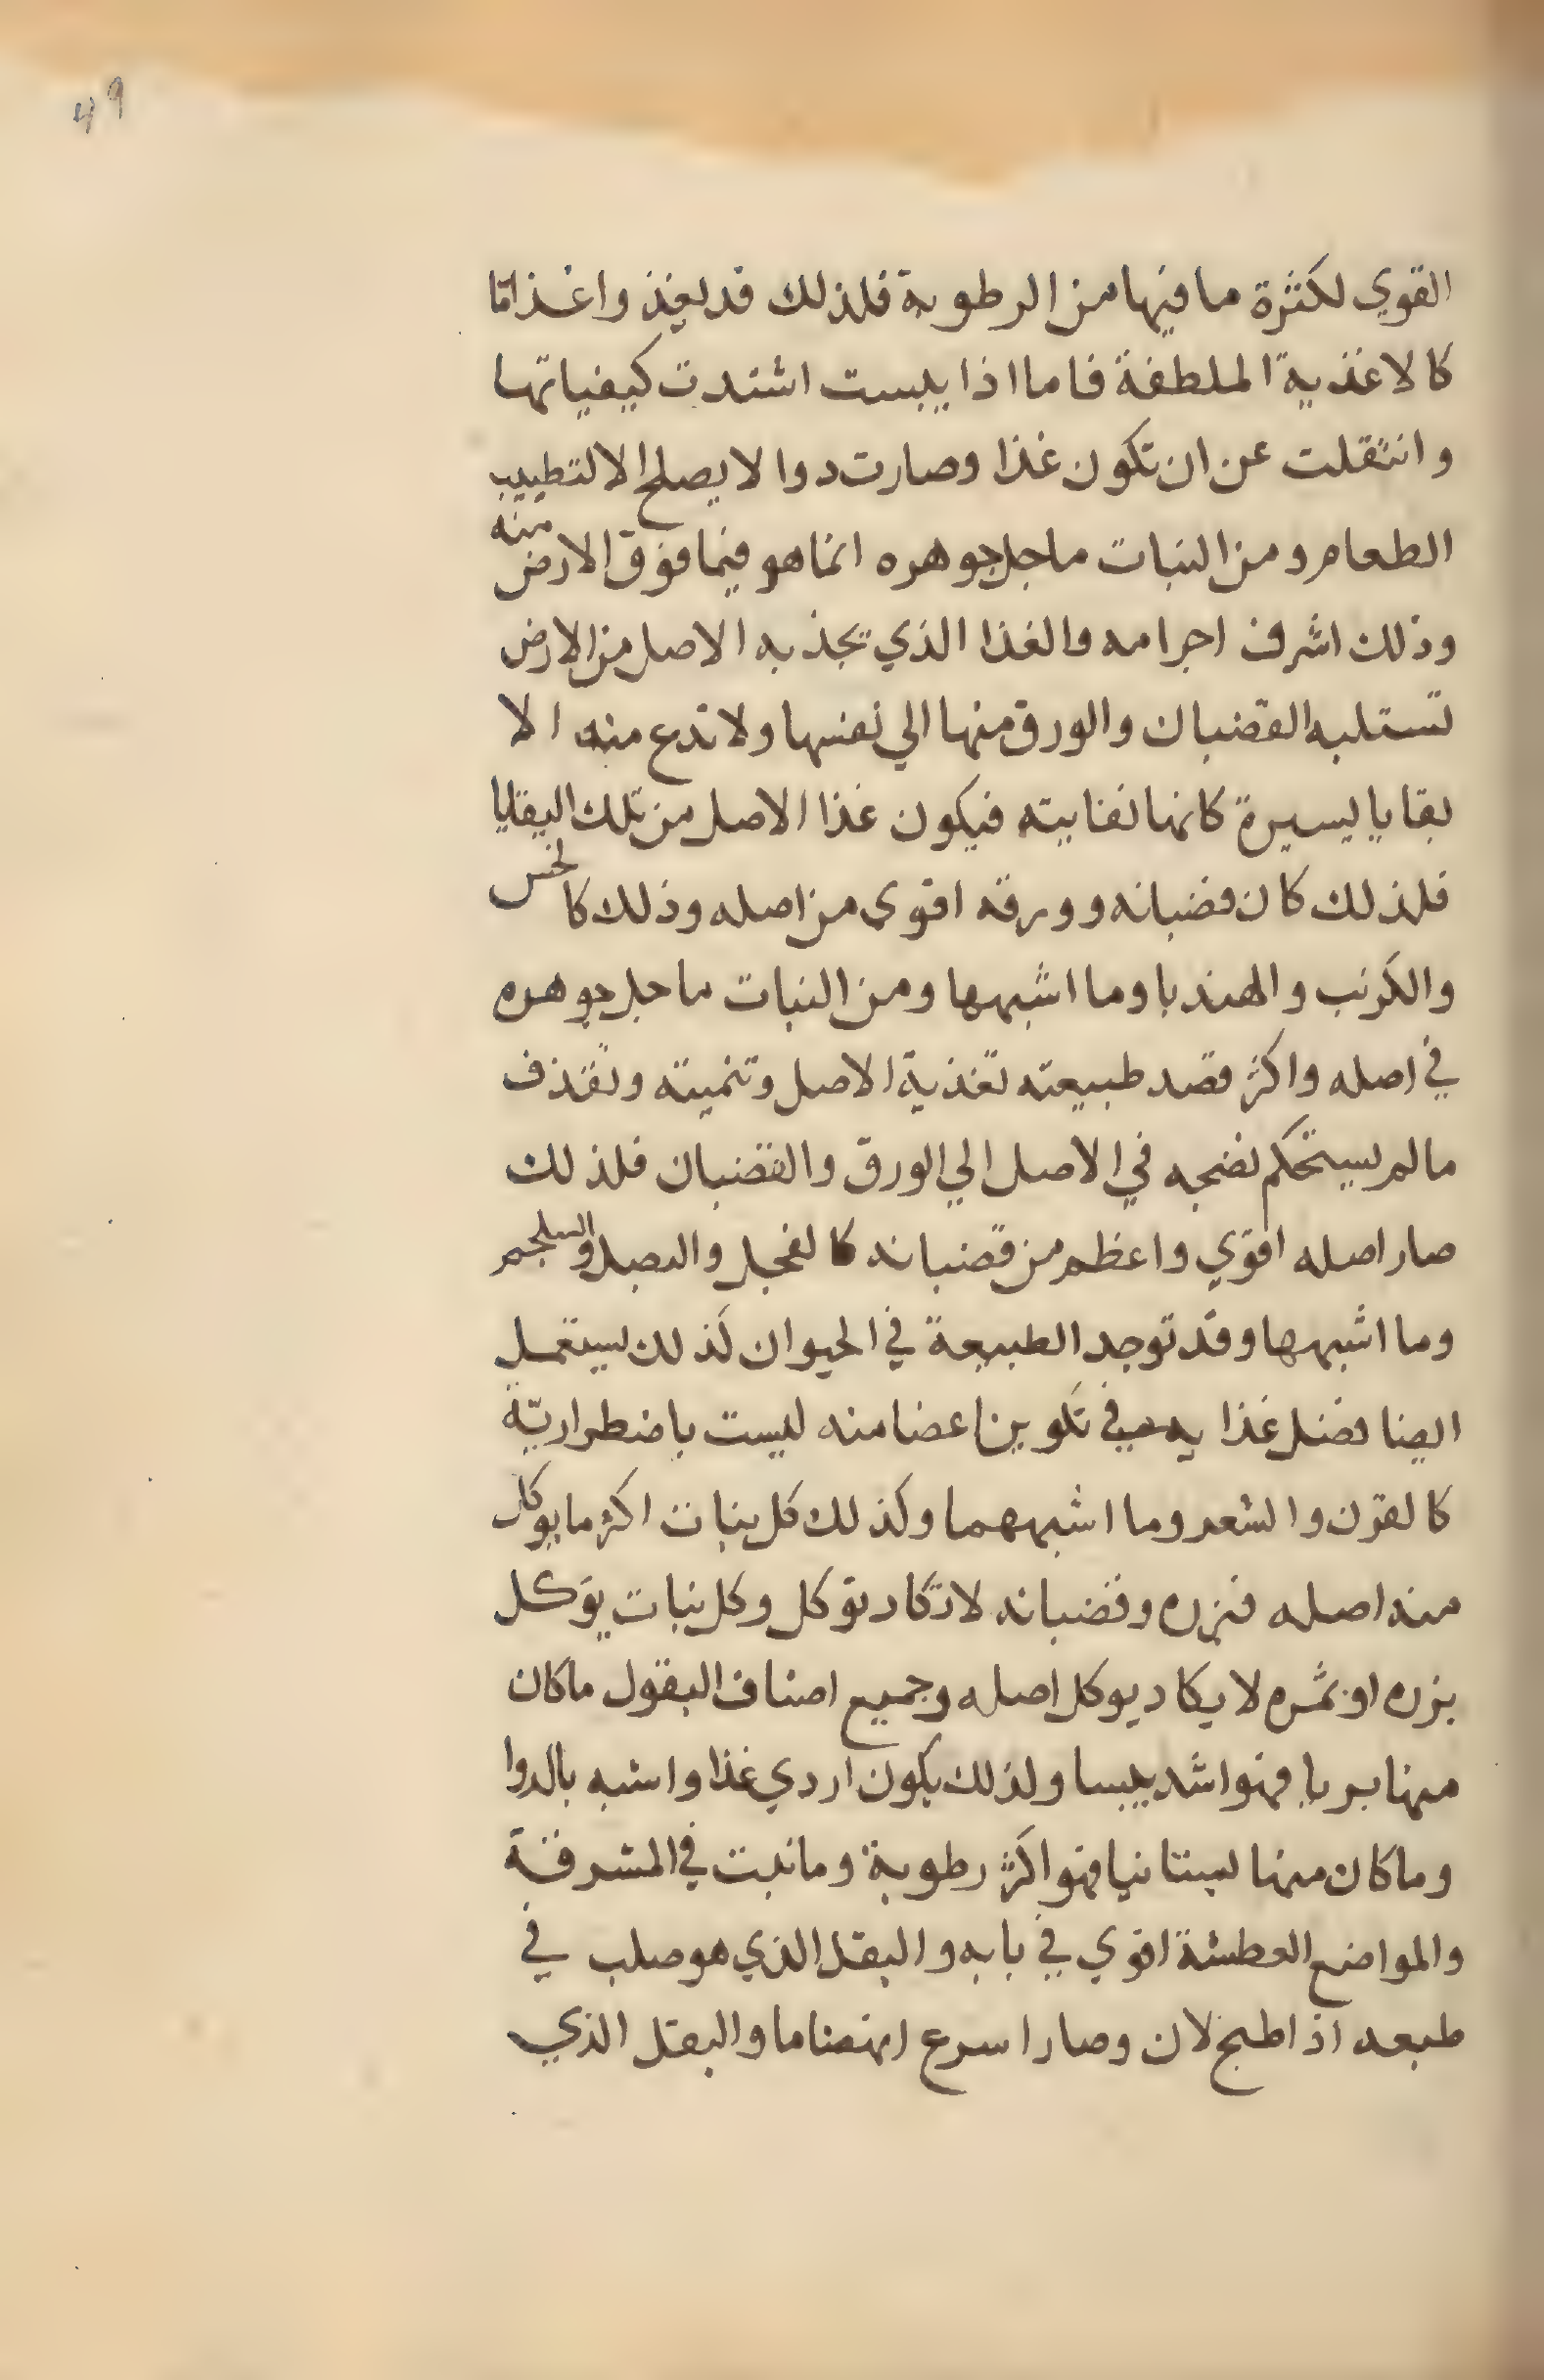 49
القوي لكثرة ما فيها من الرطوبة فلذلك قد يغذوا غذا ما
كالاغذية الملطفة فاما اذا يبست اشتدت كيفياتها
وانتقلت عن ان تكون غذا وصارت دوا لا يصلح الا لتطييب
الطعام ومن النبات ما جل جوهره انما هو فيما فوق الارض منه
وذلك اشرف اجرامه والغذا الذي يجذبه الاصل من الارض
تستلبه القضبان والورق منها الي نفسها ولا تدع منه الا
بقايا يسيرة كانها نفايته فيكون غذا الاصل من تلك البقايا
فلذلك كان قضبانه وورقه اقوى من اصله وذلك كالخس
والكرنب والهندبا وما اشبهها ومن النبات ما جل جوهره
في اصله واكثر قصد طبيعته تغذية الاصل وتنميته وتقذف
ما لم يستحكم نضجه في الاصل الي الورق والقضبان فلذلك
صار اصله اقوي واعظم من قضبانه كالفجل والبصل والسلجم
وما اشبهها وقد توجد الطبيعة في الحيوان كذلك تستعمل
ايضا فضل غذايه في تكوين اعضا منه ليست باضطرارية
كالقرن والشعر وما اشبههما وكذلك كل نبات اكثر ما يوكل
منه اصله فبزره وقضبانه لا تكاد توكل وكل نبات يوكل
بزره او ثمره لا يكاد يوكل اصله وجميع اصناف البقول ما كان
منها بريا فهو اشد يبسا ولذلك يكون اردي غذا واشبه بالدوا
وما كان منها بستانيا فهو اكثر رطوبة وما نبت في المشرقة
والمواضع العطشة اقوي في بابه والبقل الذي هو صلب في
طبعه اذا طبخ لان وصار اسرع انهضاما والبقل الذي